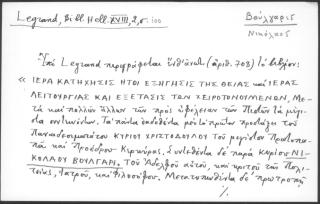 Legrand, Bibl. Hell. XVIII, 2, σ. 100
Βούλγαρις
Νικόλαος
Ὑπὸ Legrand περιγράφεται (ἀριθ. 703) τὸ βιβλίον:
« ΙΕΡΑ ΚΑΤΗΧΗΣΙΣ ΗΤΟΙ ΕΞΗΓΗΣΙΣ ΤΗΣ ΘΕΙΑΣ ΚΑΙ ΙΕΡΑΣ
ΛΕΙΤΟΥΡΓΙΑΣ ΚΑΙ ΕΞΕΤΑΣΙΣ ΤΩΝ ΧΕΙΡΟΤΟΝΟΥΜΕΝΩΝ, Με-
τὰ καὶ πολλῶν ἄλλων τῶν πρὸς ὠφέλειαν τῶν Πιστῶν τὰ μέγι-
στα συντεινόντων. Τὰ πάντα ἐκδοθέντα μὲν τὸ πρῶτον προστάξει τοῦ
Πανοσιολογιωτάτου ΚΥΡΙΟΥ ΧΡΙΣΤΟΔΟΥΛΟΥ τοῦ μεγίστου Πρωτοπα-
πᾶ καὶ Προέδρου Κερκύρας, Συντεθέντα δὲ παρὰ κυρίου ΝΙ-
ΚΟΛΑΟΥ ΒΟΥΛΓΑΡΙ, Τοῦ Ἀδελφοῦ αὐτοῦ, καὶ κριτοῦ τῆς Πολι-
τείας, Ἰατροῦ, καὶ Φιλοσόφου. Μετατυπωθέντα δὲ προτροπῇ
./.